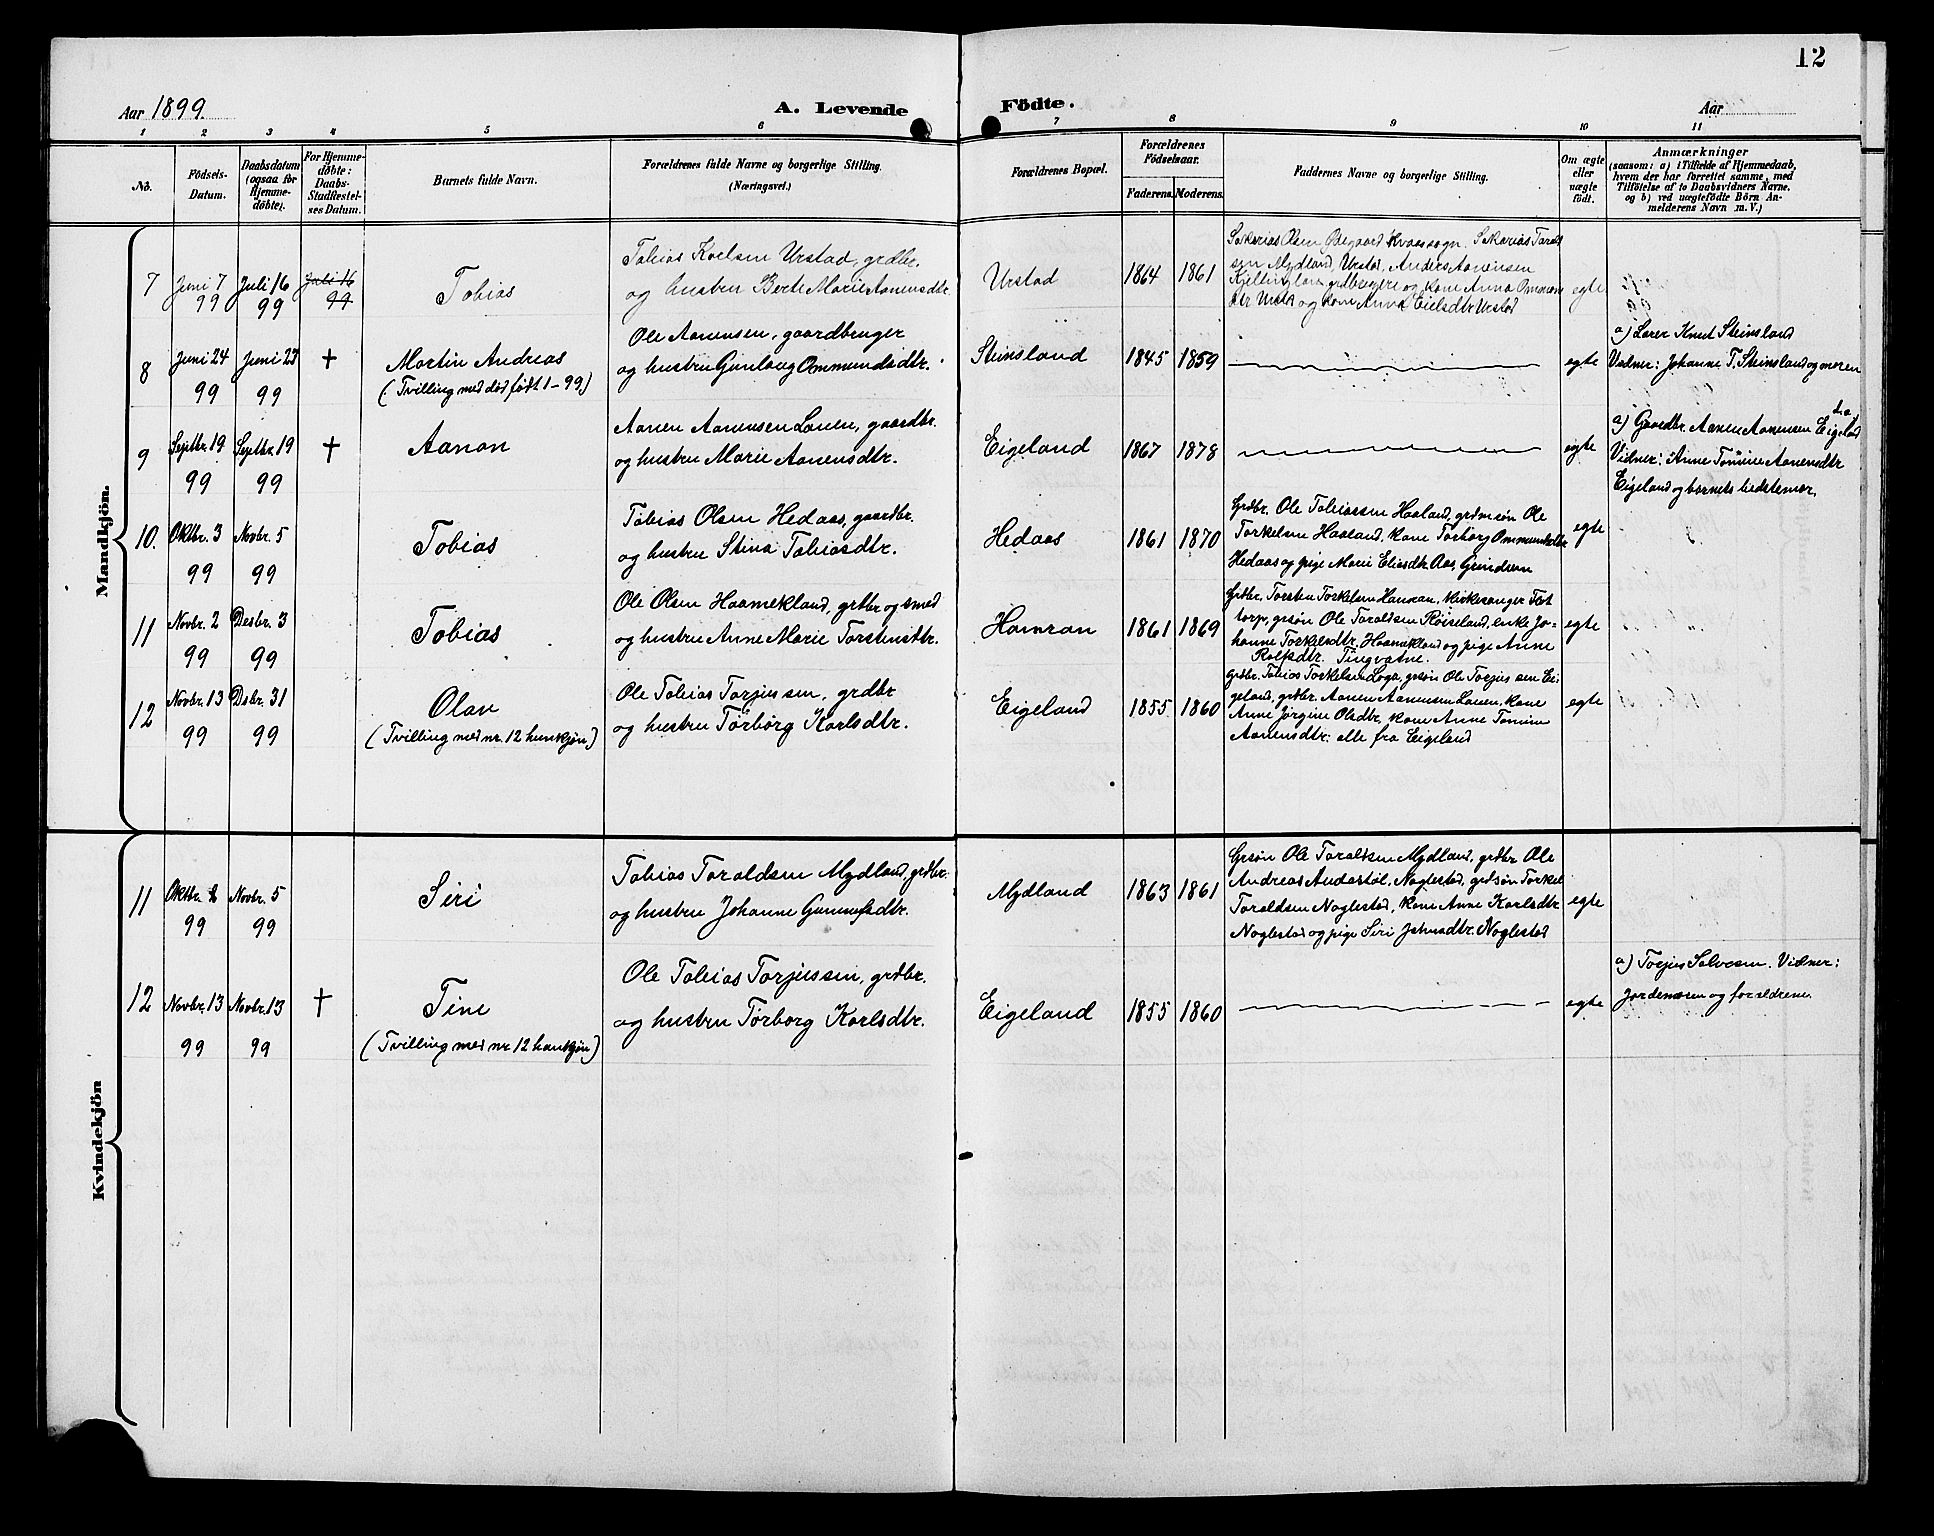 12
Aar 1899.
A. Levende
Födte.
Aar
1 2 3 4 5 6 7 8 9 10 11
No.
Födsels-
Datum.
Daabsdatum
(ogsaa for
Hjemme-
döbte).
For Hjemme-
döbte:
Daabs-
Stadfæstel-
ses Datum.
Barnets fulde Navn.
Forældrenes fulde Navne og borgerlige Stilling.
(Næringsvei.)
Forældrenes Bopæl.
Forældrenes
Födselsaar.
Faderens. Moderens.
Faddernes Navne og borgerlige Stilling.
Om ægte
eller
uægte
födt.
Anmærkninger
(saasom: a) i Tilfælde af Hjemmedaab,
hvem der har forrettet samme, med
Tilföielse af to Daabsvidners Navne,
og b) ved uægtefödte Börn An-
melderens Navn m. V.)
Mandkjön.
7
Juni 7
99
Juli 16
99
Juli 16
99
Tobias
Tobias Urstad, grdbr.
og hustru Berte Marie Aanensdtr.
Urstad
1864 1861
Sakarias Olsen Kvaas sogn. Sakarias Tarald
sen Mydland, Urstad, Anders Aanensen
grdbrugere og kone Anna
Urstad og kone Anna Urstad
egte
8
Juni 24
99
Juni 27
99
+
Martin Andreas
(Tvilling med død født 1-99)
Ole Aanensen, gaardbruger
og hustru Gunlaug Ommundsdtr.
Steinsland
1845 1859
egte
a) Lærer Knut Steinsland
Vidner: Johanne T. Steinsland og moren
9
Septbr. 19
99
Septbr. 19
99
+
Aanon
Aanen Aanensen Lauen, gaardbr.
og hustru Marie Aanensdtr.
Eigeland
1867 1878
egte
a) Gaardbr. Aanen Aanensen Eigeland
Vidner: Anne Tomine Aanensdtr
Eigeland og barnets bedstemor.
10.
Oktbr. 3
99
Novbr. 5
99
Tobias
Tobias Olsen Hedaas, gaardbr.
og hustru Stina Tobiasdtr.
Hedaas
1861 1870
Grdbr. Ole Tobiassen Haaland, grdmsøn Ole
Torkelsen Haaland, kone Torborg Ommundsdtr
Hedaas og pige Marie Eliasdtr Aas, Grindem
egte
11
Novbr. 2
99
Desbr. 3
99
Tobias
Ole Olsen Haamekland, grdbr og smed
og hustru Anne Marie Torstensdtr.
Hamran
1861 1869
Grdbr. Torsten Torkelsen Hamran, kirkesanger
grsøn Ole Taraldsen Røiseland, enke Jo-
hanne Torkelsdtr. Haamekland og pige Anne
Rolfsdtr. Tingvatne.
egte
12
Novbr. 13
99
Desbr. 31
99
Olav
(Tvilling med nr. 12 hunkjøn)
Ole Tobias Torjussen, grdbr
og hustru Tørborg Karlsdtr.
Eigeland
1855 1860
Grdbr. Tobias Torkelsen Loga, grsøn Ole Torjussen Ei-
geland, grdbr. Aanen Aanensen Lauen, kone
Anne Jørgine Olsdtr, kone Anne Tomine
Aanensdtr: alle fra Eigeland
egte
Kvindekjön
11
Oktbr.
99
Novbr. 5
99
Siri
Tobias Taraldsen Mydland, grdbr.
og hustru Johanne Gunnufsdtr.
Mydland
1863 1861
Grsøn Ole Taraldsen Mydland, grdbr Ole
Andreas Audastøl, Noglestad, grdsøn Torkel
Taraldsen Noglestad, kone Anne Karlsdtr
Noglestad og pige Siri Johnsdtr. Noglestad
egte
12
Novbr. 13
99
Novbr. 13
99
+
Tine
(Tvilling med nr 12 hankjøn)
Ole Tobias Torjussen, grdbr.
og hustru Tørborg Karlsdtr.
Eigeland
1855 1860
egte
a) Torjus Salvesen. Vidner:
Jordemoren og forældrene.